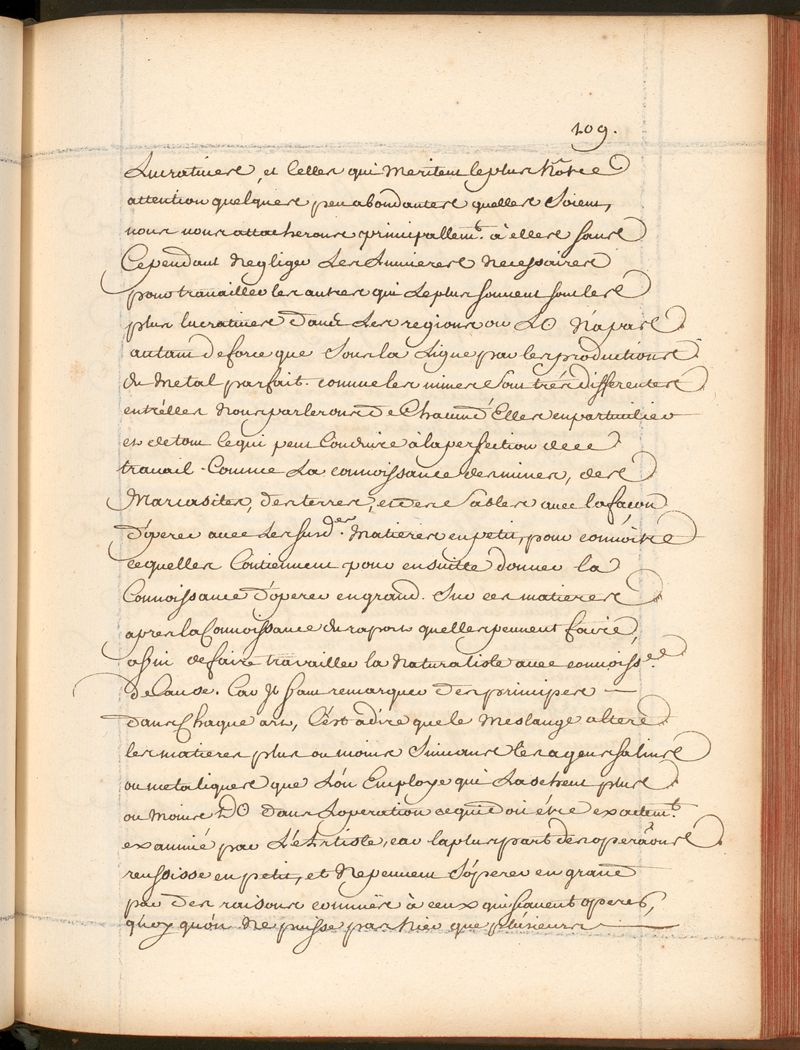 109.
Lucratives, et celles qui meritent le plus nôtre
attention quelques peu abondantes quelles soient,
nous nous attacherons principallemt. à elles sans
Cependant negliger Les Lumieres necessaires
pour travailler les autres qui le plus souvent sont les
plus lucratives dans Les regions ou Le n'a pas
autant de force que sous la Ligne par les productions
du metal parfait. comme les mines sont trés differentes
entrélles nous parlerons de Chacune d'Elles en particulier
et de tout ce qui peut Conduire à la perfection de ce
travail. Comme La connoissance des mines, des
Marcasites, des terres, et des Sables avec la façon
d'óperer avec Les susdes. Matieres en petit, pour connoître
ce quelles Contiennent pour ensuitte donner la
Connoissance d'óperer en grand. Sur ces matieres
apres la Connoissance du raport quelles peuvent faire,
afin de faire travailler la naturaliste avec connoissce.
de Cause. Car Jl faut remarquer des principes
dans Chaque art, C'est adire que le meslange altere
les matieres plus ou moins Suivant les agens salins
ou metaliques que L'ón Employe qui Lachent plus
ou moins dans Loperation ce qui doit étre exactemt.
examiné par L'Artiste, car la pluspart des operâons
reussisse en petit, et ne peuvent s'óperer en grand
par des raisons connües à ceux qui sçavent operer,
quoy qu'ón ne puisse pas nier que plusieurs